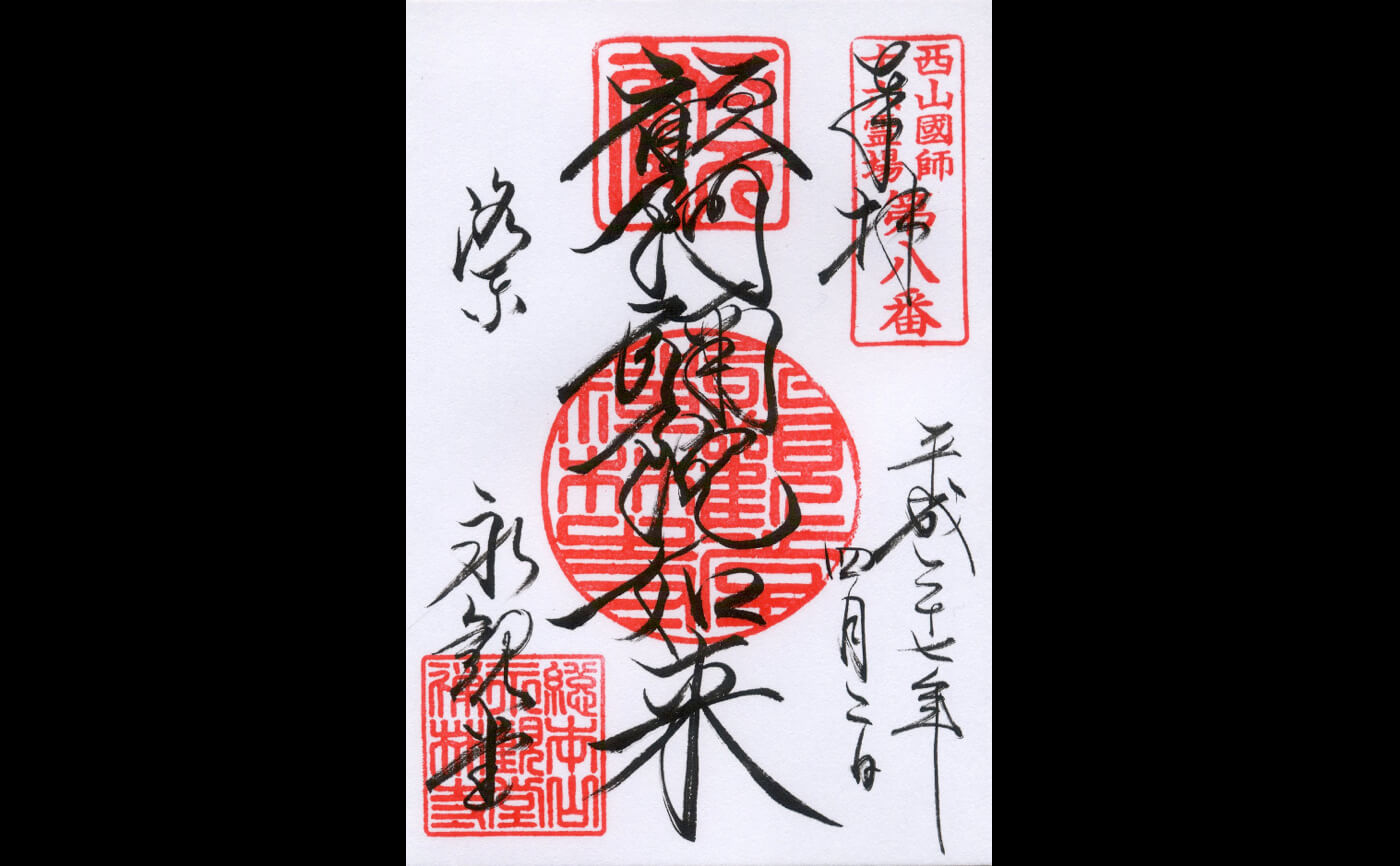 西山國師
十六霊場
第八番
奉拝
平成二十七年
四月二日
顧阿彌陀如来
洛東
永観堂
総本山
永観堂
禅林寺